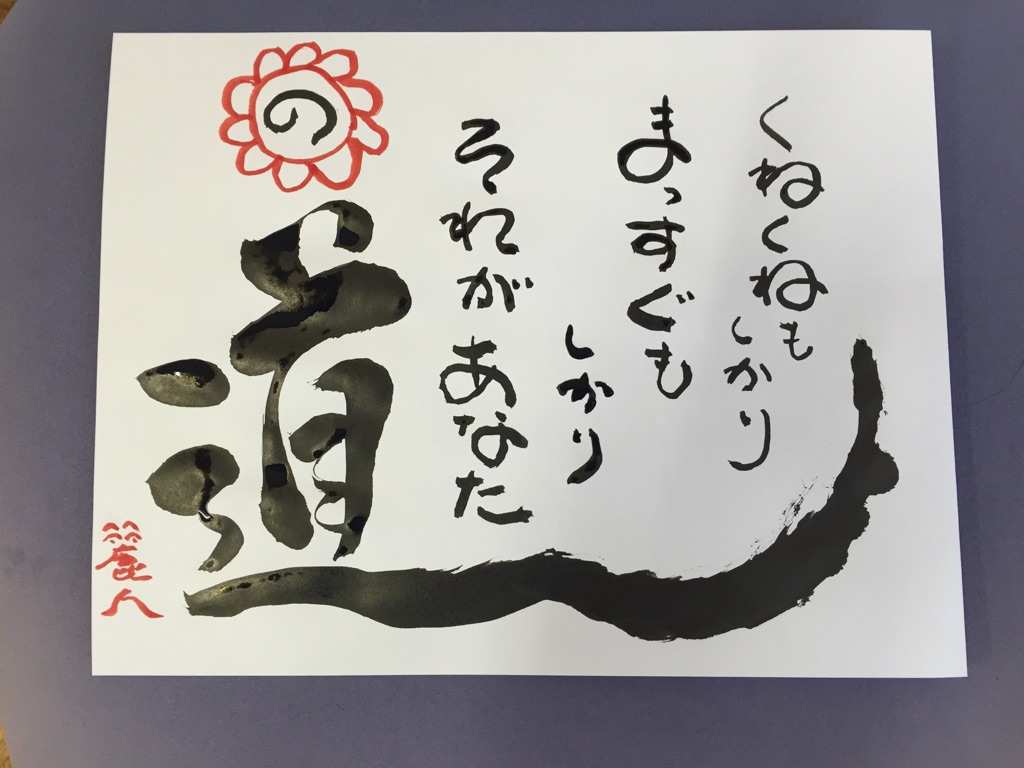 くねくねも
しかり
まっすぐも
しかり
それがあなた
の
道
麗人